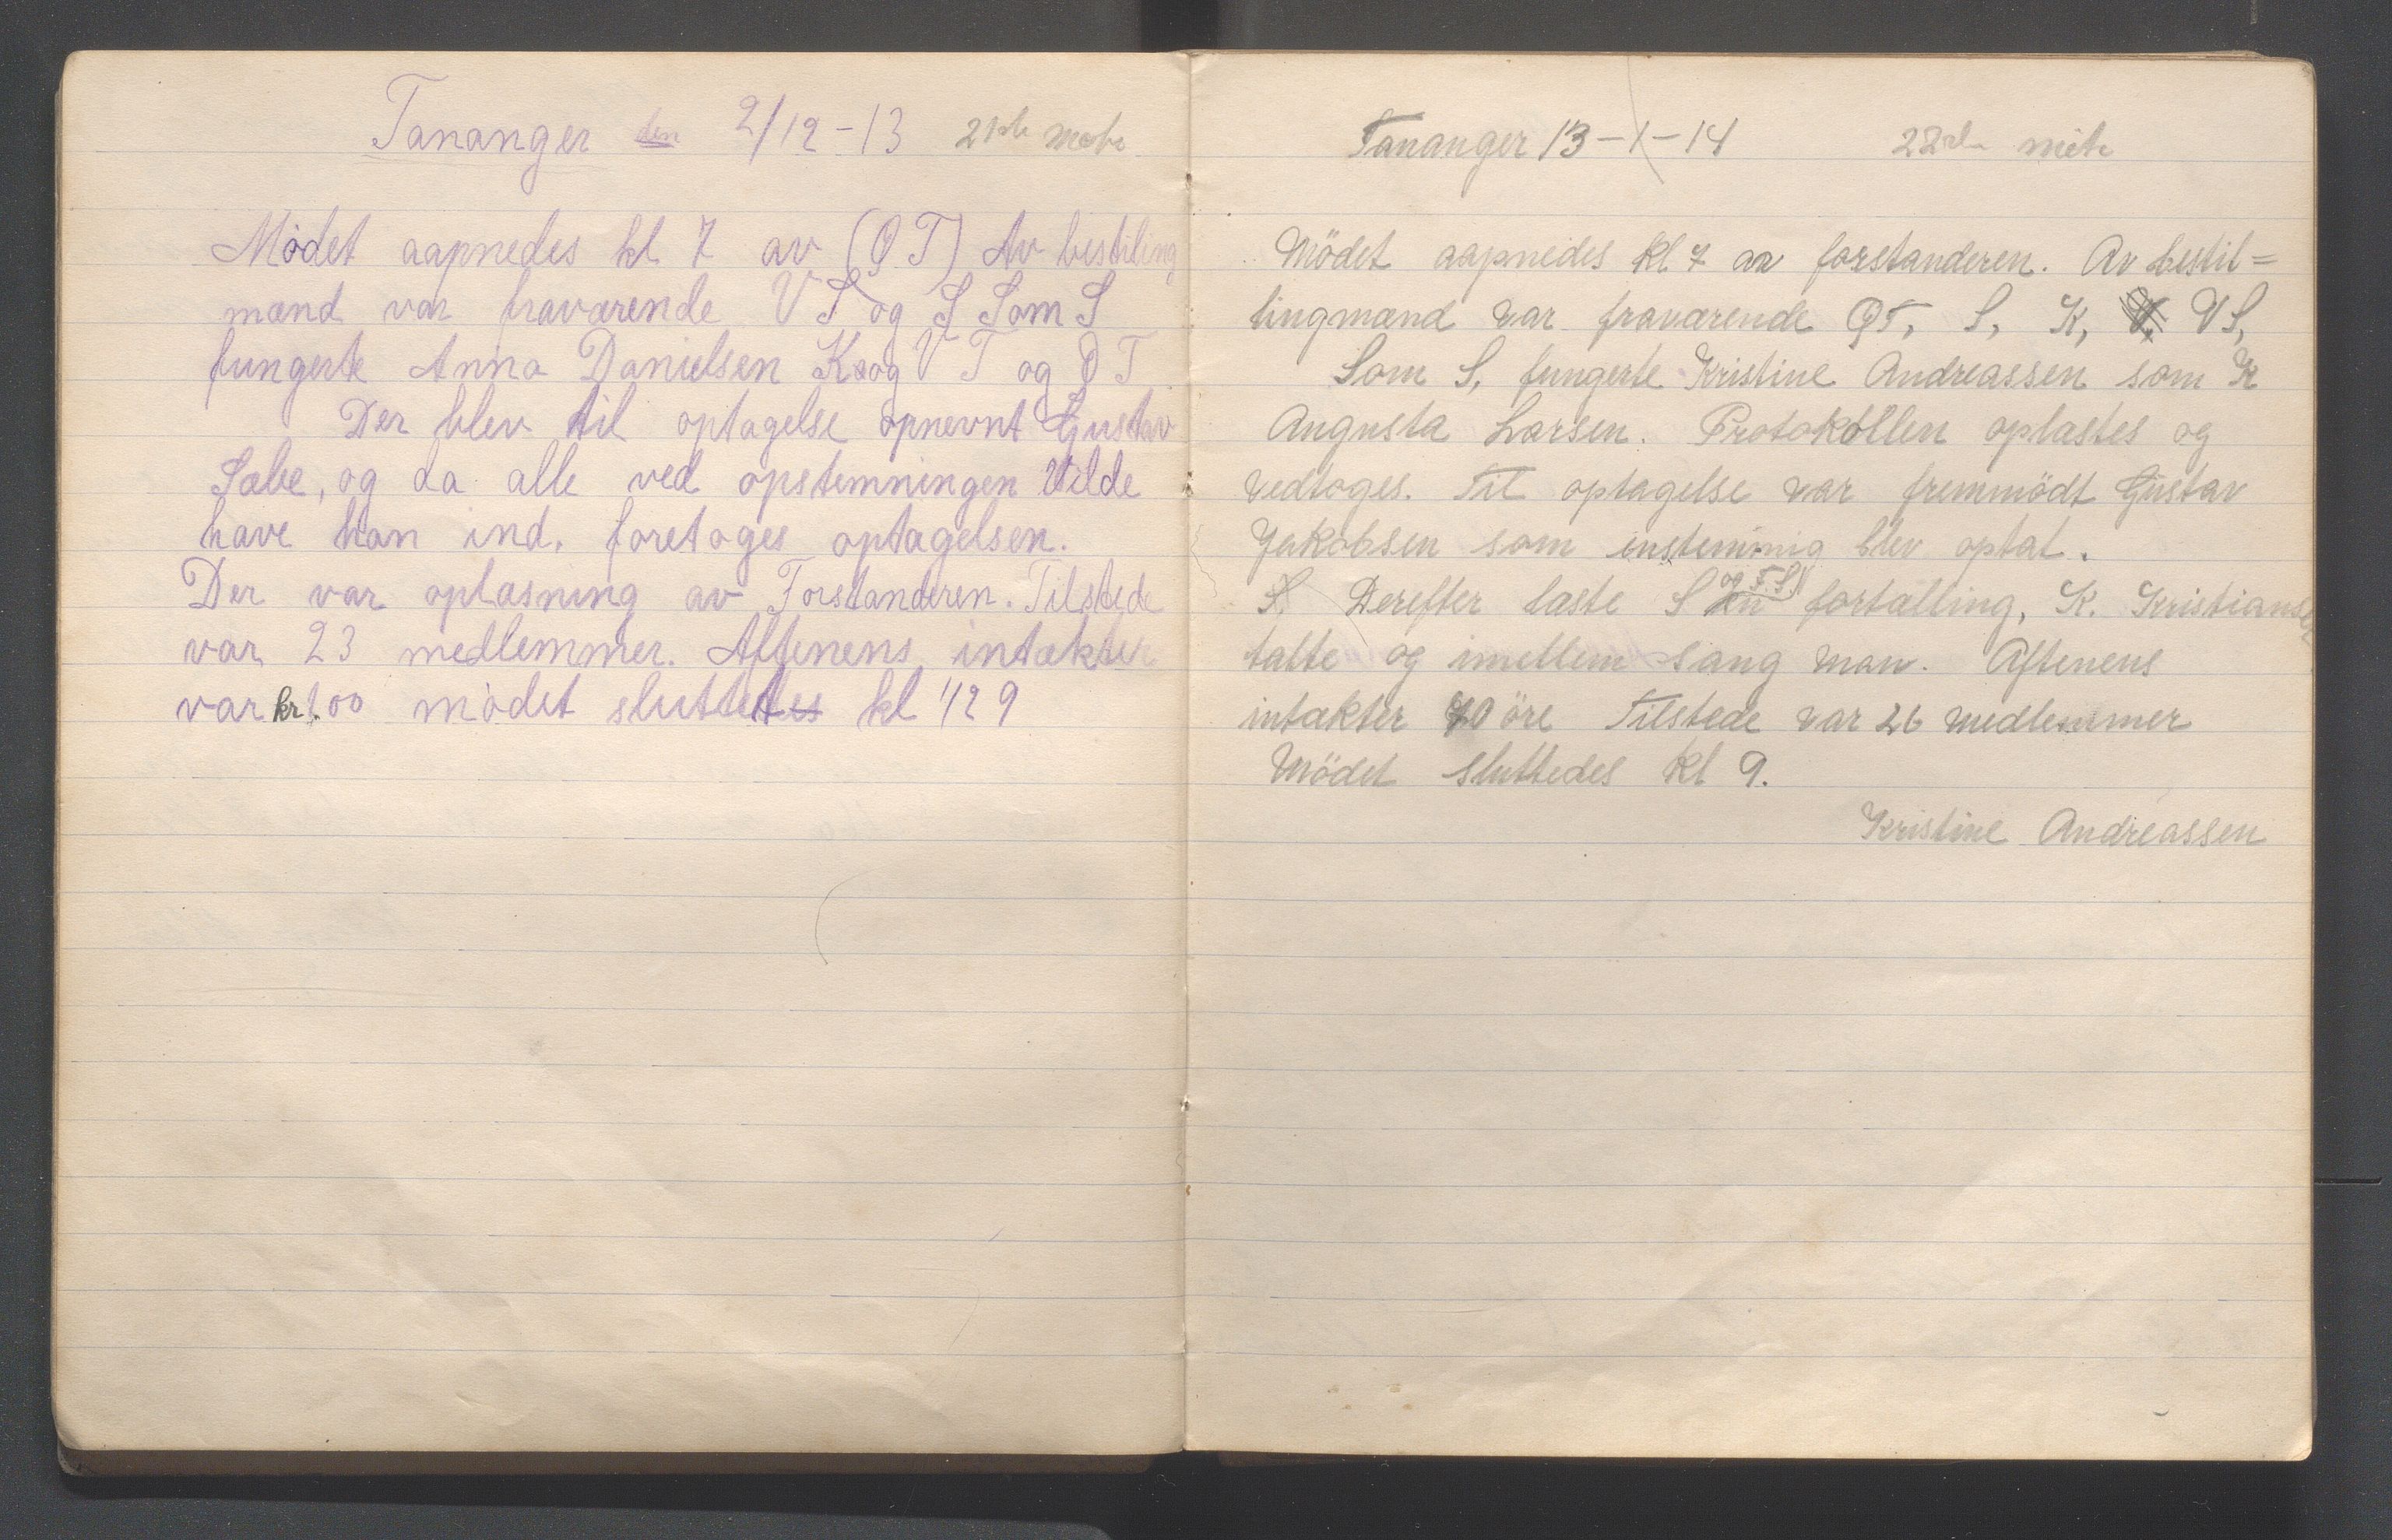 Tananger den 2/12-13 21de møte
Mödet aapnedes kl 7 av (Q T) Av bestiling
mænd var fraværende V S og S Som S
fungerte Anna Danielsen K og V T og Q T
Der blev til optagelse opnevnt Gustav
Sæbe, og da alle ved opstemningen vilde
have han ind. foretoges optagelsen.
Der var oplæsning av Forstanderen. Tilstede
var 23 medlemmer. Aftenens intækter
var kr. 1.00 mödet sluttettes kl 1/2 9
Tananger 13-1-14 22de möte
Mödet aapnedes kl 7 av forstanderen. Av bestil=
lingmænd var fraværende QT, S, K, VS,
Som S, fungerte Kristine Andreassen som K
Augusta Larsen. Protokollen oplæstes og
vedtoges. Til optagelse var fremmödt Gustav
Jakobsen som enstemmig blev optat.
S. Derefter læste S og T.S.V. en fortælling, K. Kristiansen
talte og imellem sang man. Aftenens
intækter 70 öre Tilstede var 26 medlemmer
Mödet sluttedes kl 9.
Kristine Andreassen